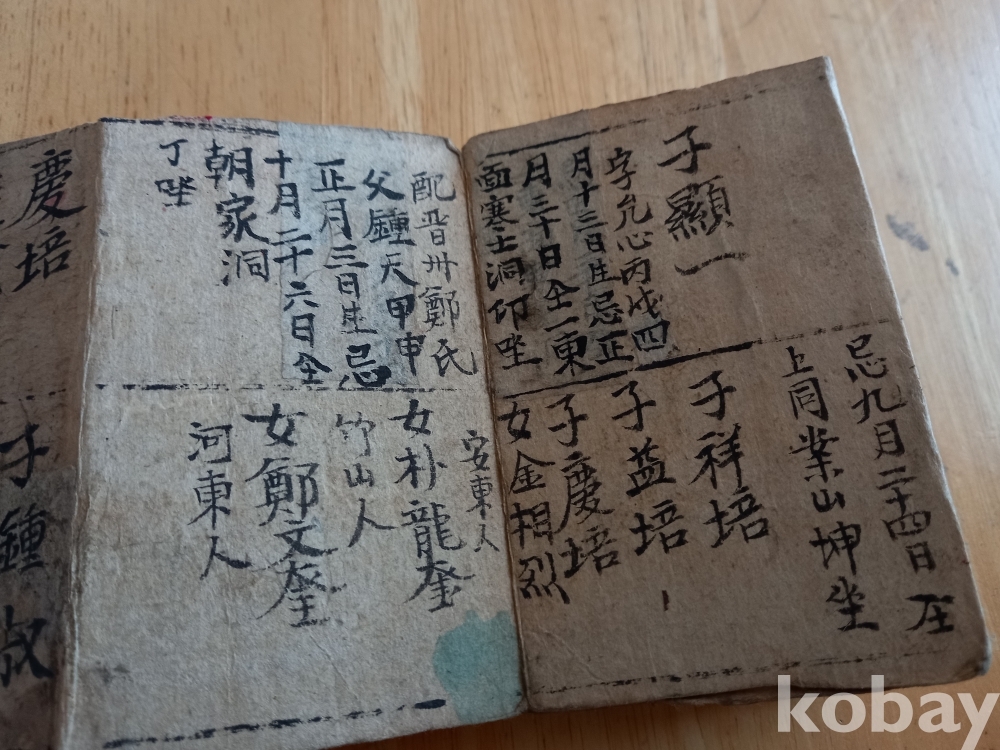 子顯一
字允心丙戌四
月十三日生忌正
月三十日仝一東
面寒士洞卯坐
忌九月二十四日在
上同業山坤坐
子祥培
子益培
子慶培
女金相烈
安東人
配晋州鄭氏
父鍾天甲申
正月三日生忌
十月二十六日仝
朝家洞
丁坐
女朴龍奎
竹山人
女鄭文奎
河東人
慶培
子鍾淑
kobay